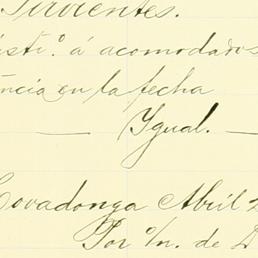 Sirvientes.
isti.º á acomodados
encia en la fecha
— Igual. —
Covadonga Abril 2
Por o/n. de D